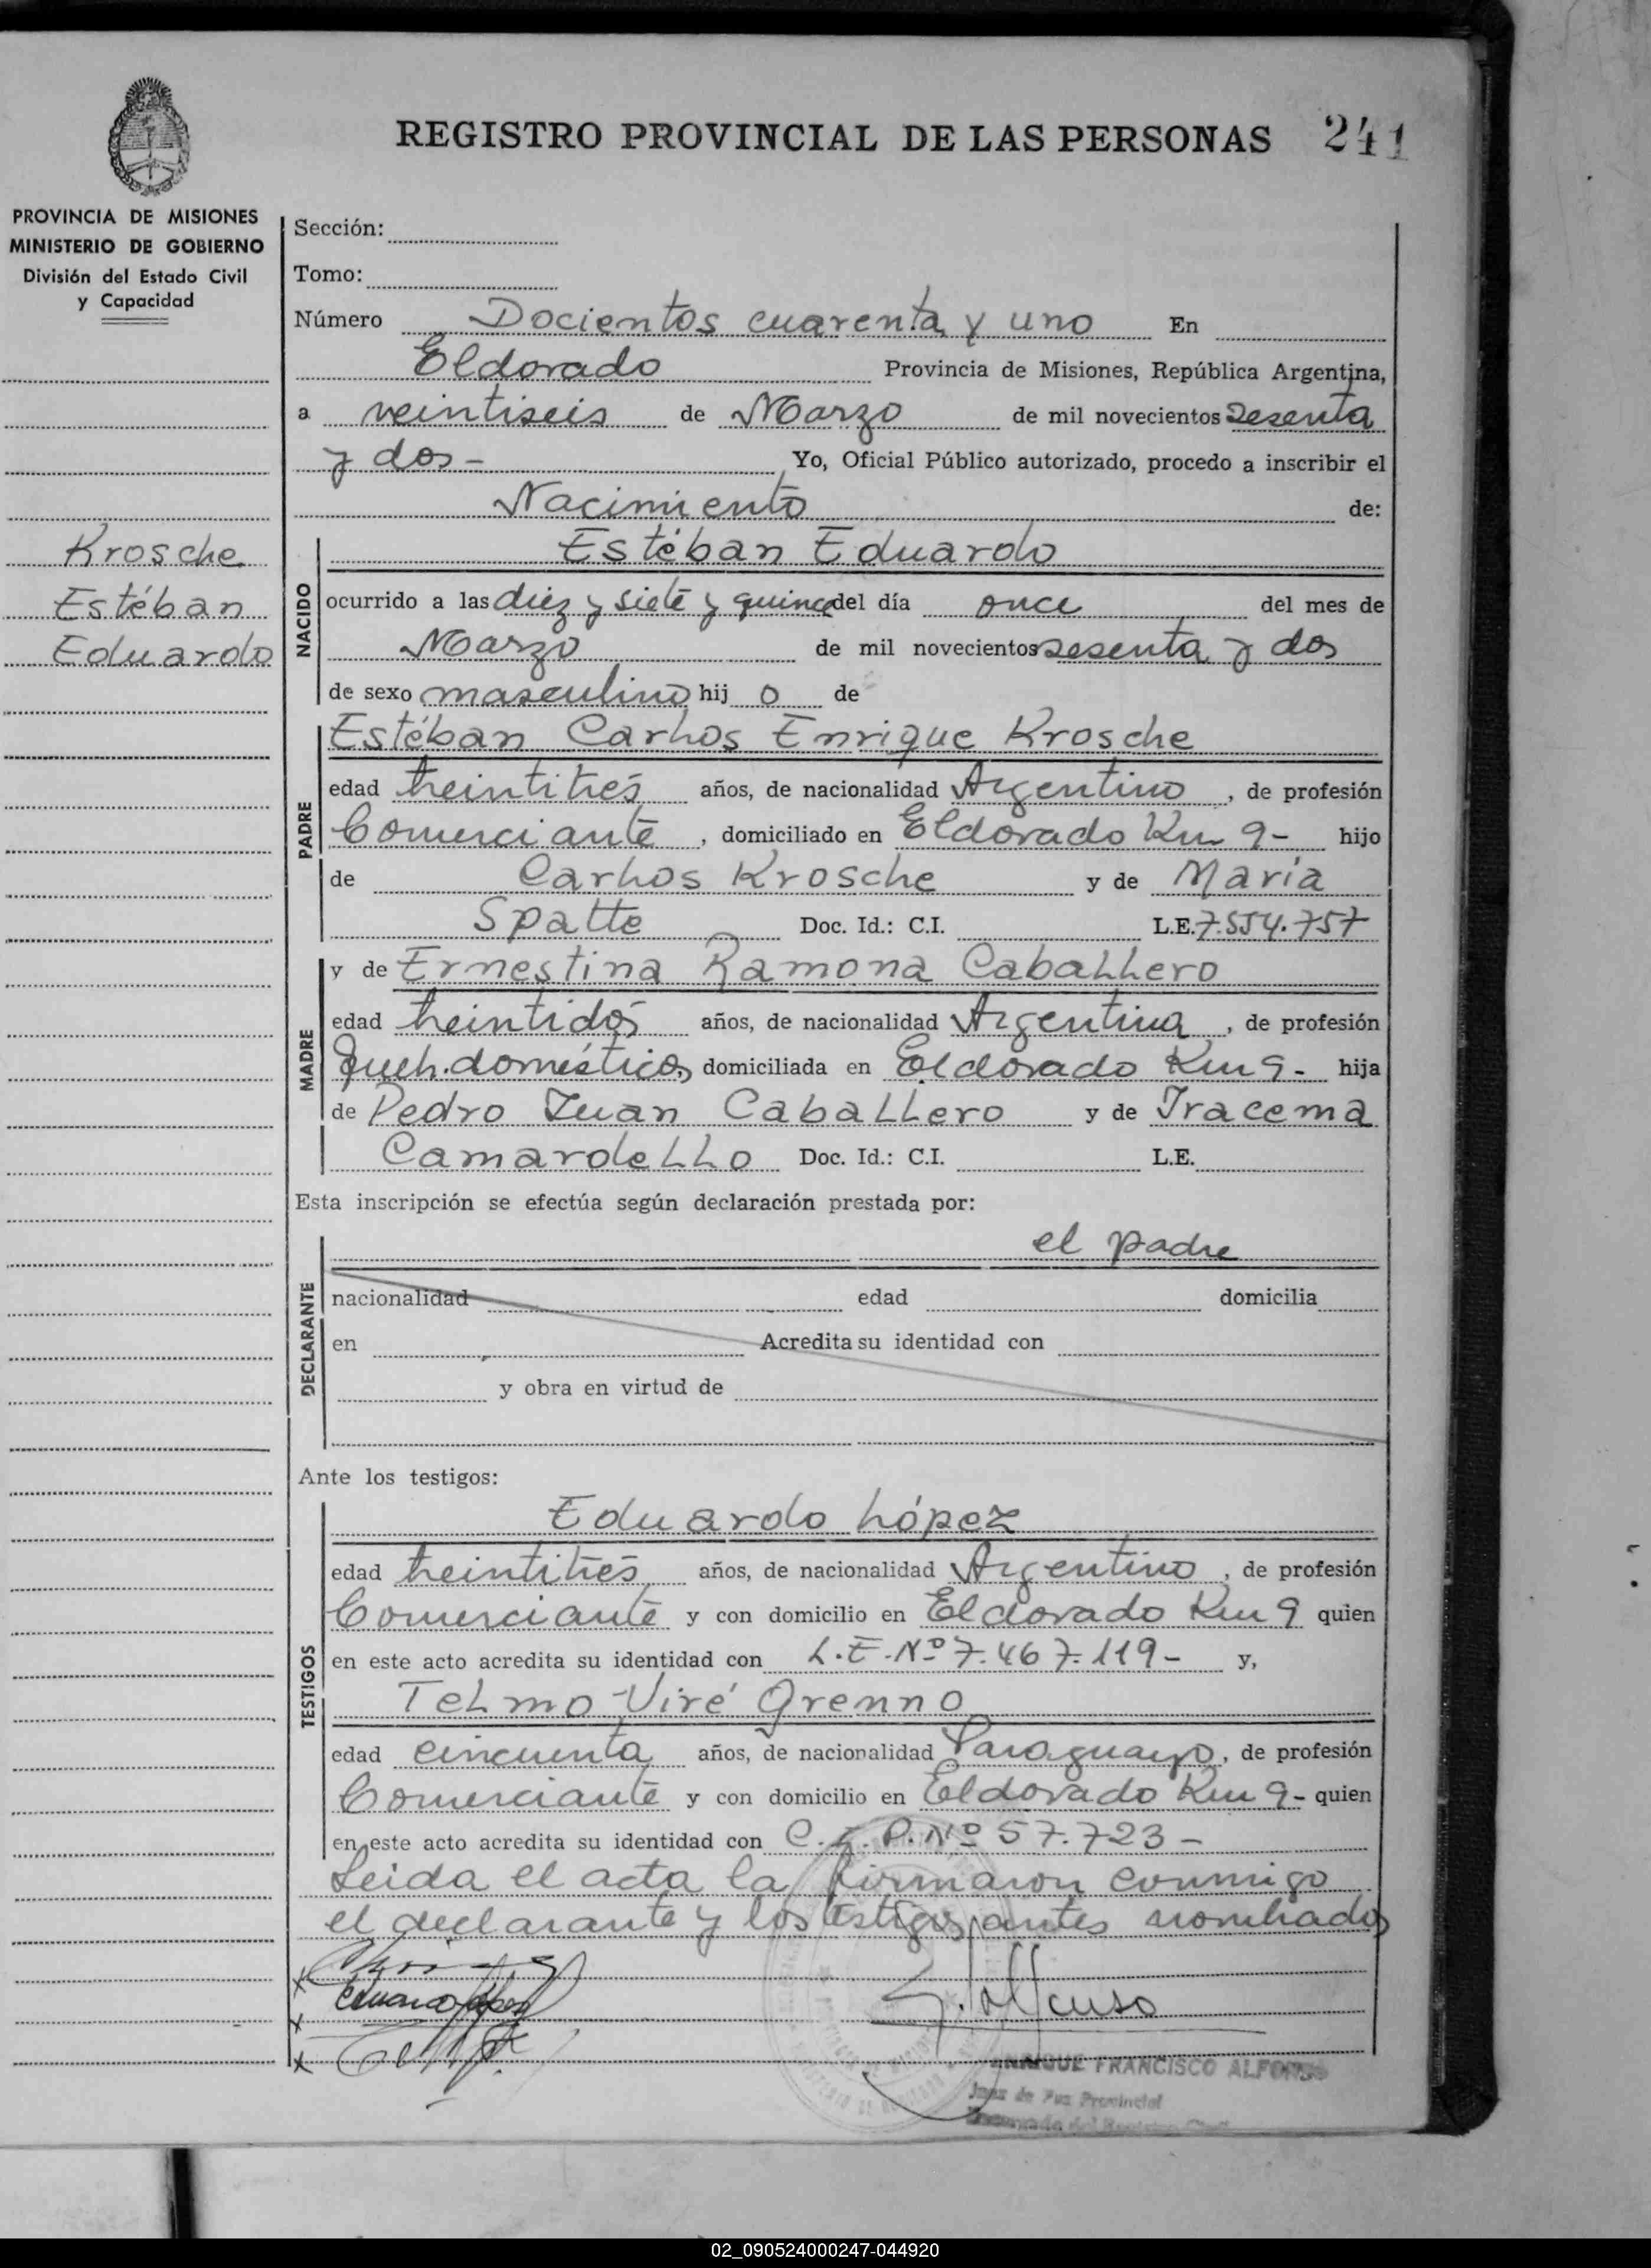 REGISTRO PROVINCIAL DE LAS PERSONAS 241
PROVINCIA DE MISIONES
MINISTERIO DE GOBIERNO
División del Estado Civil
y Capacidad
Krosche
Estéban
Eduardo
Sección:
Tomo:
Número Docientos cuarenta y uno En
Eldorado Provincia de Misiones, República Argentina,
a veintiseis de Marzo de mil novecientos sesenta
y dos- Yo, Oficial Público autorizado, procedo a inscribir el
Nacimiento de:
NACIDO
Estéban Eduardo
ocurrido a las diez y siete y quince del día once del mes de
Marzo de mil novecientos sesenta y dos
de sexo masculino hij o de
PADRE
Estéban Carlos Enrique Krosche
edad treintitrés años, de nacionalidad Argentino, de profesión
Comerciante, domiciliado en Eldorado Km 9- hijo
de Carlos Krosche y de María
Spatte Doc. Id.: C.I. L.E. 7.554.757
MADRE
y de Ernestina Ramona Caballero
edad treintidós años, de nacionalidad Argentina, de profesión
Queh. domésticos, domiciliada en Eldorado Km 9- hija
de Pedro Juan Caballero y de Iracema
Camardello Doc. Id.: C.I. L.E.
Esta inscripción se efectúa según declaración prestada por:
DECLARANTE
el padre
nacionalidad edad domicilia
en Acredita su identidad con
y obra en virtud de
Ante los testigos:
TESTIGOS
Eduardo López
edad treintitrés años, de nacionalidad Argentino, de profesión
Comerciante y con domicilio en Eldorado Km 9 quien
en este acto acredita su identidad con L.E.Nº 7.467.119- y,
Telmo Viré Grenno
edad cincuenta años, de nacionalidad Paraguayo, de profesión
Comerciante y con domicilio en Eldorado Km 9- quien
en este acto acredita su identidad con C.I.P.Nº 57.723-
Leida el acta la firmaron conmigo
el declarante y los testigos antes nombrados
x
x Eduardo López
x
ENRIQUE FRANCISCO ALFONSO
Juez de Paz Provincial
Encargado del Registro Civil
02_090524000247-044920